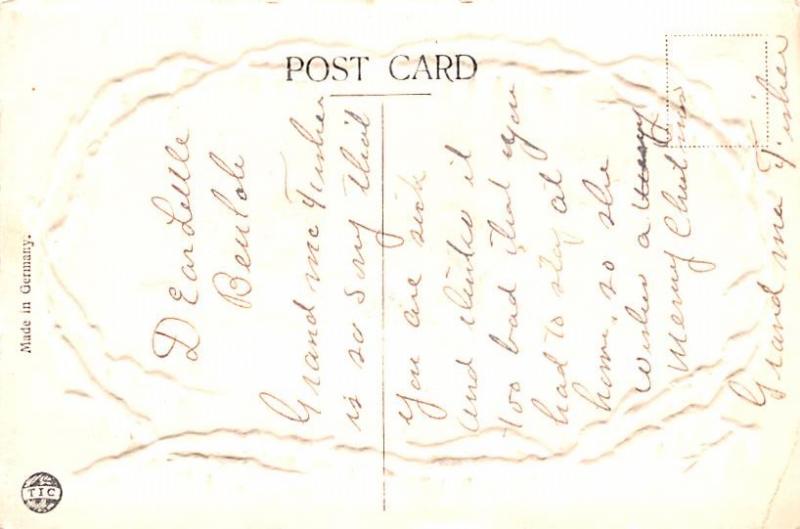 POST CARD
Made in Germany.
TIC
Dear Little
Beulah
Grand me Fisher
is so Sory that
you are sick
and thinks it
too bad that you
had to stay at
home, so she
wishes a
Merry Christmas
Grand ma Fisher